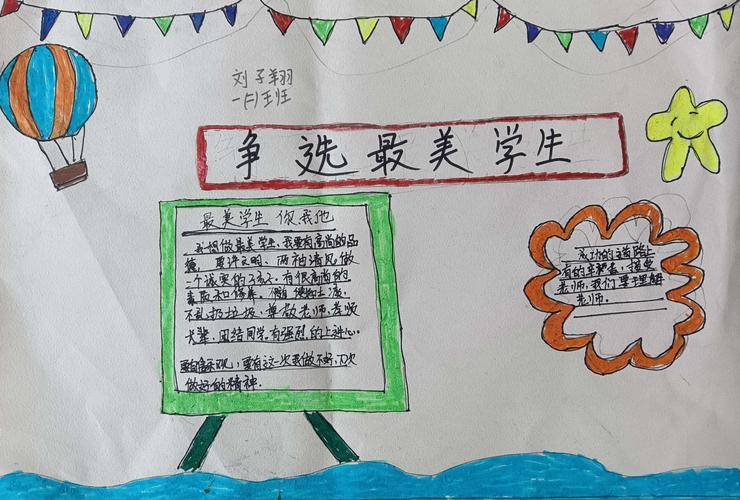 刘子翔
一(1)班
争选最美学生
最美学生 你我他
我想做最美学生,我要有高尚的品
德,要讲文明、两袖清风,做
一个诚实的孩子。有很高尚的
素质和修养。
不乱扔垃圾,尊敬老师、孝顺
长辈,团结同学,有强烈的上进心。
要自信乐观,要有这一次我做不好,下次
做好的精神.
成功的道路上
有的辛酸苦,接受
老师,我们要理解
老师。